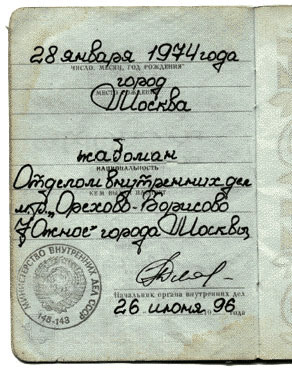 28 января 1974 года
ЧИСЛО, МЕСЯЦ, ГОД РОЖДЕНИЯ
город
МЕСТО РОЖДЕНИЯ
Москва
жабоман
НАЦИОНАЛЬНОСТЬ
Отделом внутренних дел
КЕМ ВЫДАН ПАСПОРТ
м/р „Орехово-Борисово
Южное" города Москвы
Начальник органа внутренних дел
26 июня 96 года
МИНИСТЕРСТВО ВНУТРЕННИХ ДЕЛ СССР
148-143